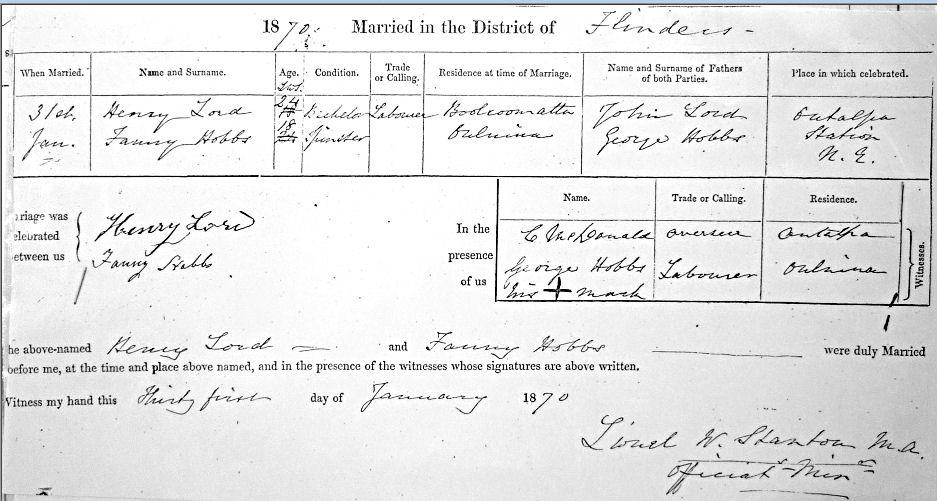 1870. Married in the District of Flinders -
When Married. Name and Surname. Age. Condition. Trade or Calling. Residence at time of Marriage. Name and Surname of Fathers of both Parties. Place in which celebrated.
31st. Henry Lord 24 Bachelor Labourer Boolcoomatta John Lord Outalpa
Jan. Fanny Hobbs 18 Spinster Oulnina George Hobbs Station
N. E.
Name. Trade or Calling. Residence.
riage was
elebrated
etween us
Henry Lord
Fanny Hobbs
In the
presence
of us
C McDonald overseer Outalpa
George Hobbs Labourer Oulnina
his + mark
Witnesses.
he above-named Henry Lord — and Fanny Hobbs were duly Married
before me, at the time and place above named, and in the presence of the witnesses whose signatures are above written.
Witness my hand this Thirty first day of January 1870
Lionel W. Stanton M.A.
Officiatg Minr